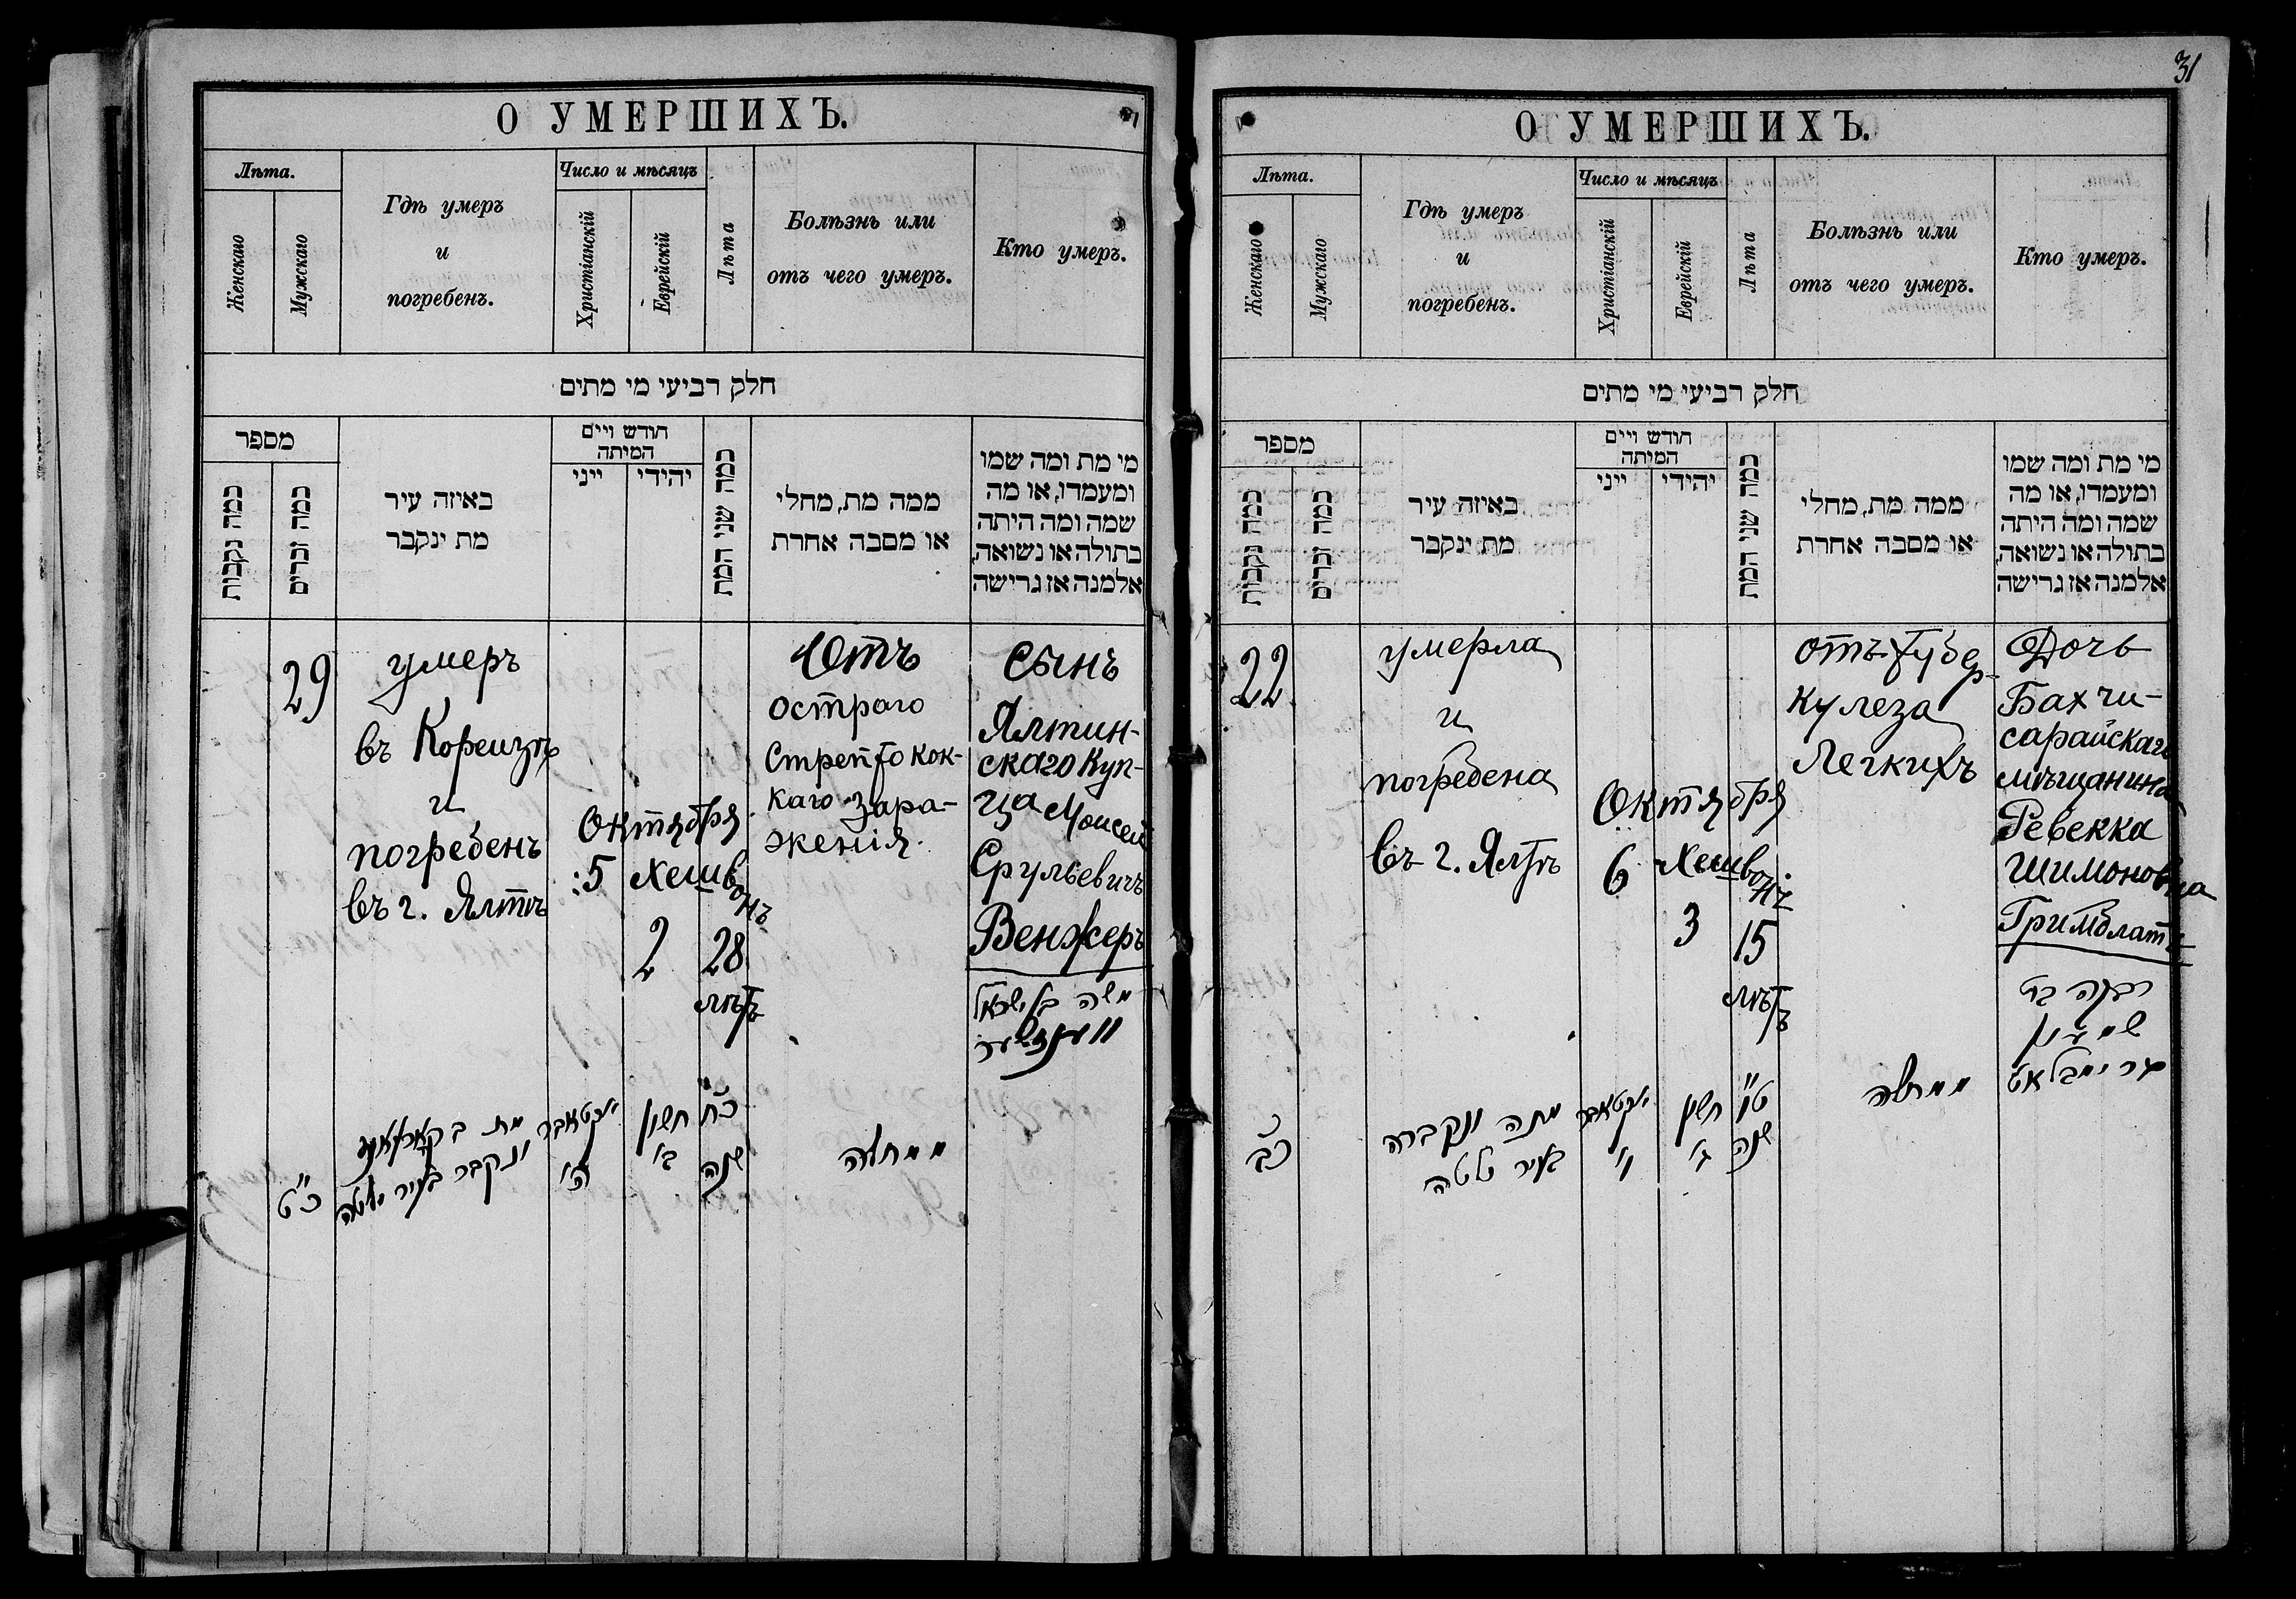 31
О УМЕРШИХЪ.
Лѣта.
Женскаго
Мужскаго
Гдѣ умеръ
и
погребенъ.
Число и мѣсяцъ
Христіанскій
Еврейскій
Лѣта
Болѣзнь или
отъ чего умеръ.
Кто умеръ.
חלק רביעי מי מתים
מספר
כמה נקבות
כמה זכרים
באיזה עיר
מת ינקבר
חודש ויים
המיתה
ייני
יהידי
כמה שני המת
ממה מת, מחלי
או מסבה אחרת
מי מת ומה שמו
ומעמדו, או מה
שמה ומה היתה
בתולה או נשואה,
אלמנה אז גרישה
29
умеръ
въ Кореизѣ
и
погребенъ
въ г. Ялтѣ
Октября
5 Хешвонъ
2
28
лѣтъ
Отъ
остраго
Стрептокок-
каго зара-
женія.
Сынъ
Ялтин-
скаго Куп-
ца Моисей
Срульевичъ
Венжеръ
משה בן ישראל
ווענזשער
כ"ט
ונקבר בעיר יאלטה
אקטאבר
ה'
חשון
ב'
כ"ח
שנה
ממחלה
О УМЕРШИХЪ.
Лѣта.
Женскаго
Мужскаго
Гдѣ умеръ
и
погребенъ.
Число и мѣсяцъ
Христіанскій
Еврейскій
Лѣта
Болѣзнь или
отъ чего умеръ.
Кто умеръ.
חלק רביעי מי מתים
מספר
כמה נקבות
כמה זכרים
באיזה עיר
מת ינקבר
חודש ויים
המיתה
ייני
יהידי
כמה שני המת
ממה מת, מחלי
או מסבה אחרת
מי מת ומה שמו
ומעמדו, או מה
שמה ומה היתה
בתולה או נשואה,
אלמנה אז גרישה
22
умерла
и
погребена
въ г. Ялтѣ
Октября
6 Хешвонъ
3
15
лѣтъ
отъ тубер-
кулеза
Легкихъ
Дочь
Бахчи-
сарайскаго
мѣщанина
Ревекка
Шимоновна
Гримблатъ
רבקה בת
שמעון
גרימבלאט
כ"ב
מתה ונקברה
בעיר ילטה
אקטאבר
ו'
חשון
ג'
ט"ו
שנה
ממחלה